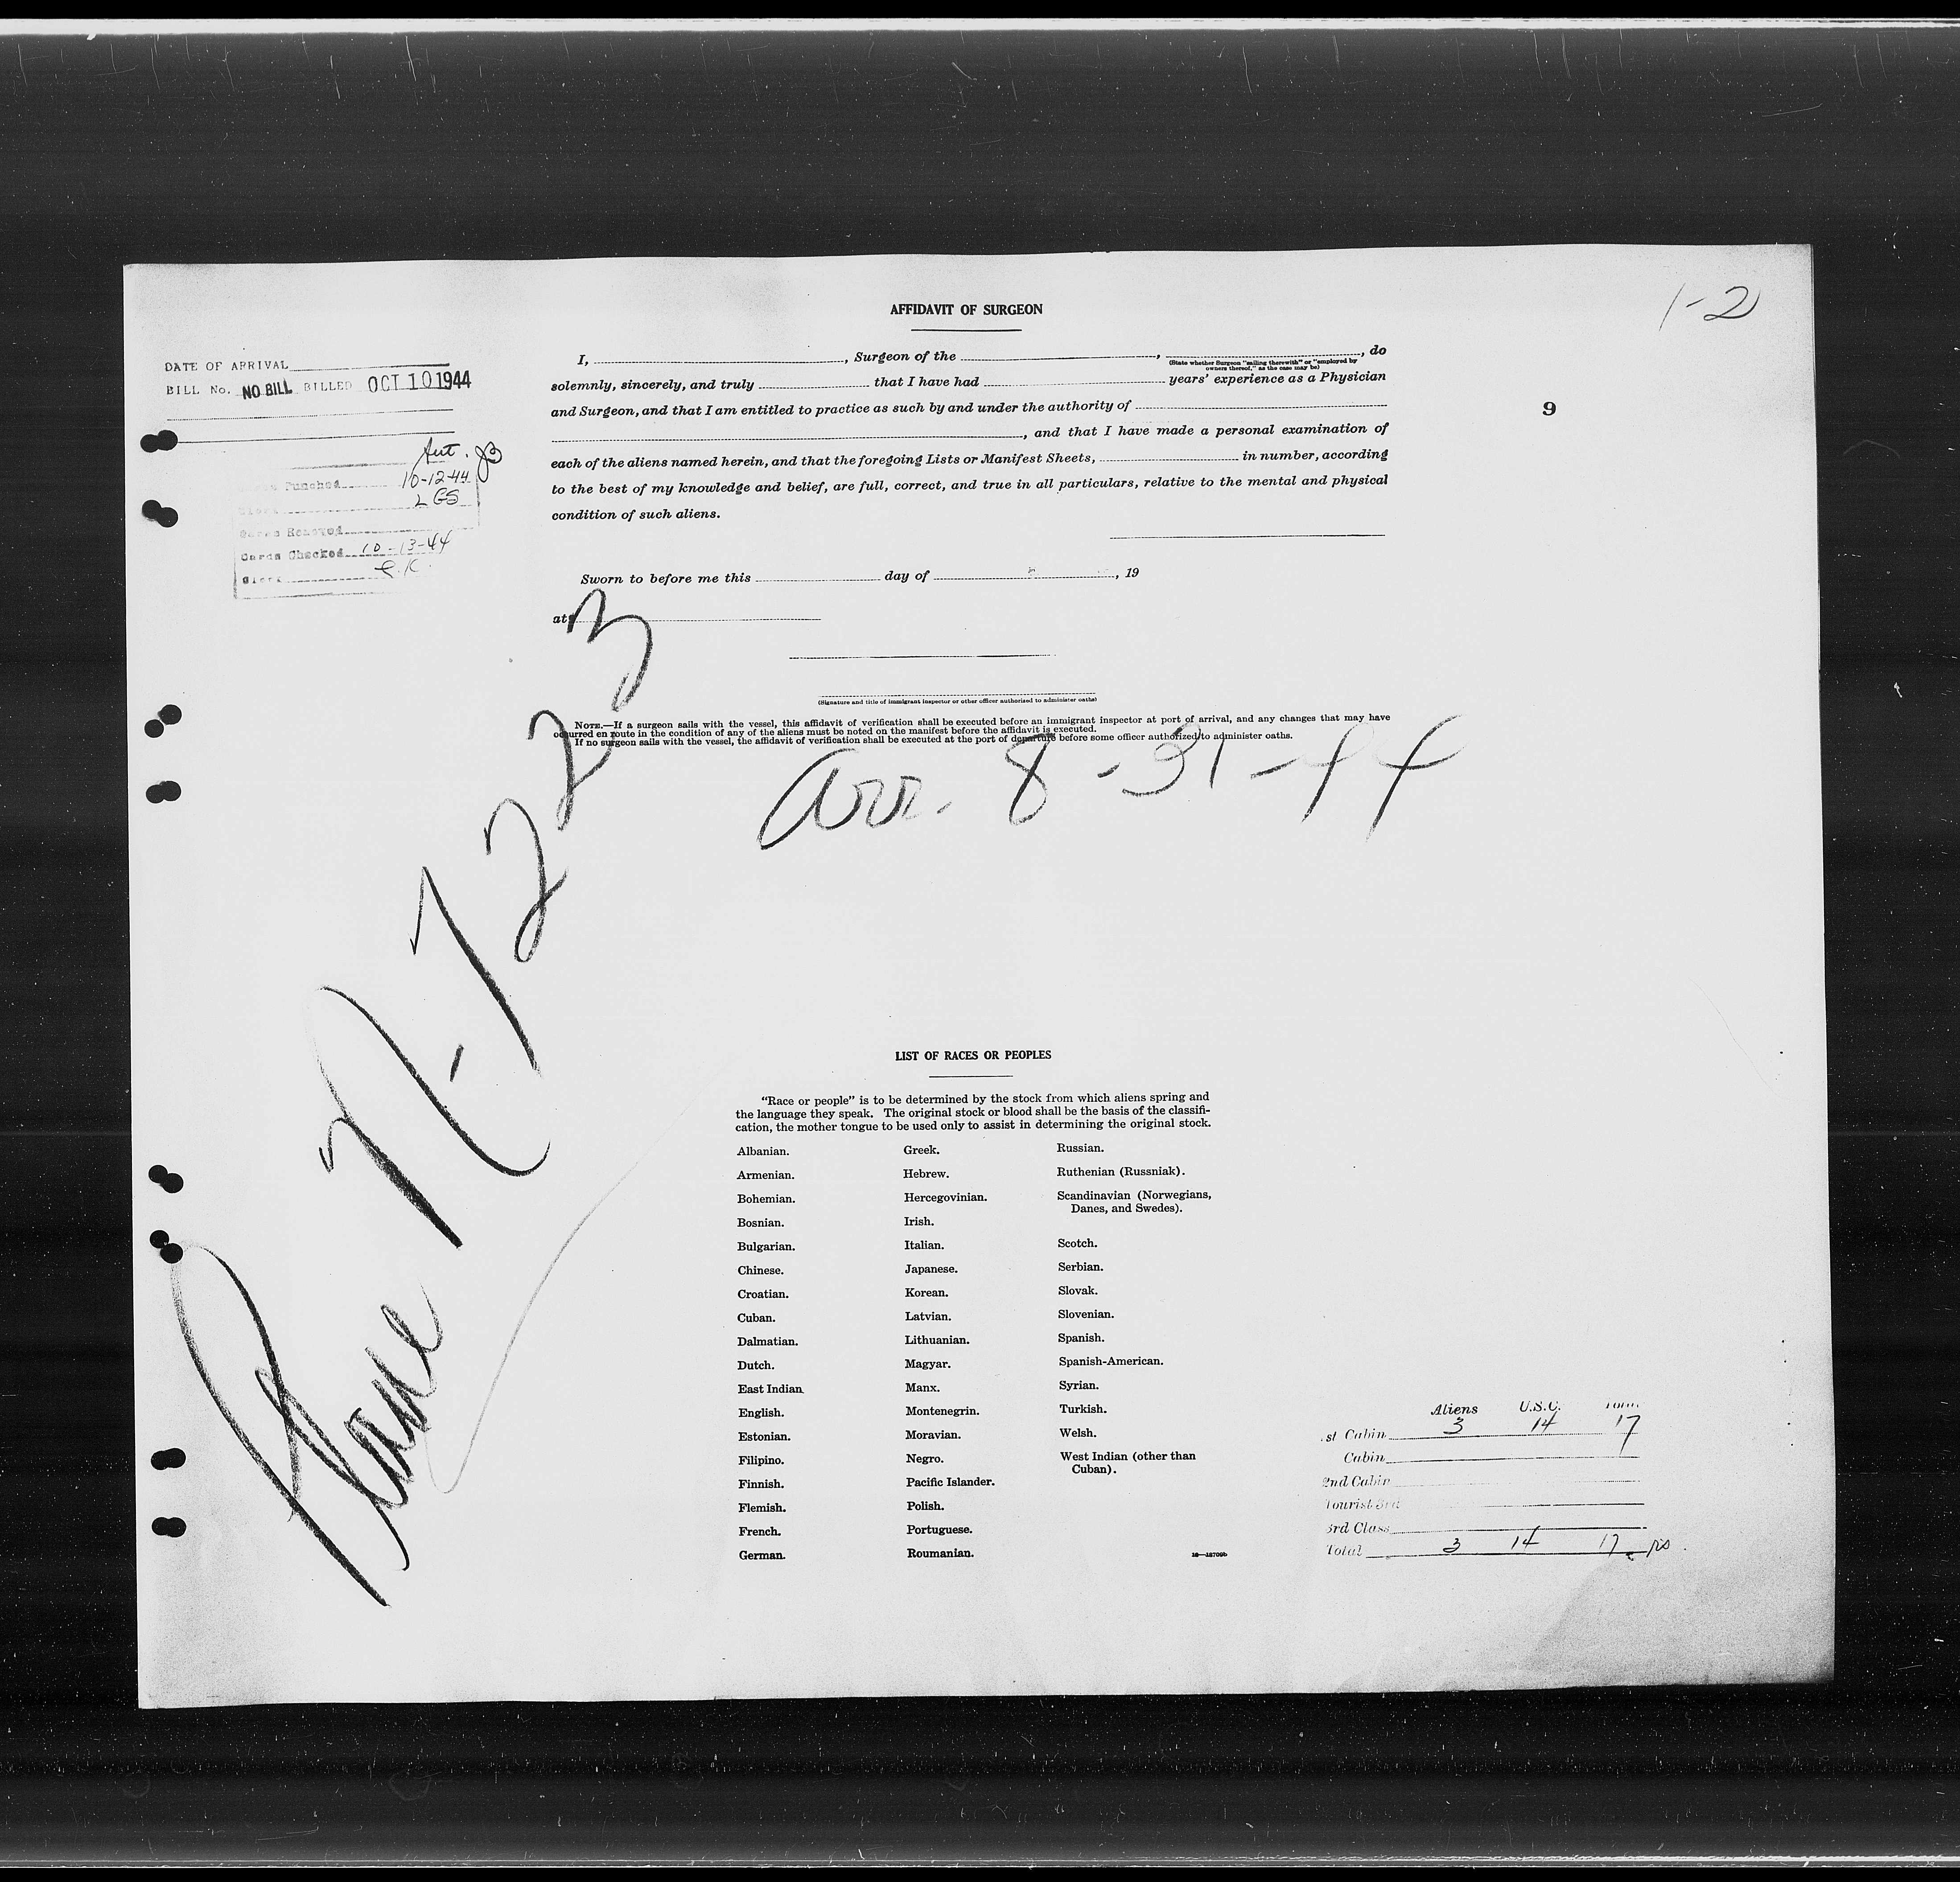 1-2
AFFIDAVIT OF SURGEON
DATE OF ARRIVAL
BILL No. NO BILL BILLED OCT 10 1944
I, , Surgeon of the , , do
(State whether Surgeon "sailing therewith" or "employed by
owners thereof," as the case may be)
solemnly, sincerely, and truly that I have had years' experience as a Physician
and Surgeon, and that I am entitled to practice as such by and under the authority of
9
, and that I have made a personal examination of
each of the aliens named herein, and that the foregoing Lists or Manifest Sheets, in number, according
to the best of my knowledge and belief, are full, correct, and true in all particulars, relative to the mental and physical
condition of such aliens.
Punched 10-12-44
LGS
Cards Removed
Cards Checked 10-13-44
Clerk
Sworn to before me this day of , 19
at
(Signature and title of immigrant inspector or other officer authorized to administer oaths)
NOTE.—If a surgeon sails with the vessel, this affidavit of verification shall be executed before an immigrant inspector at port of arrival, and any changes that may have
occurred en route in the condition of any of the aliens must be noted on the manifest before the affidavit is executed.
If no surgeon sails with the vessel, the affidavit of verification shall be executed at the port of departure before some officer authorized to administer oaths.
Arr. 8-31-44
Plane N-7223
LIST OF RACES OR PEOPLES
"Race or people" is to be determined by the stock from which aliens spring and
the language they speak. The original stock or blood shall be the basis of the classifi-
cation, the mother tongue to be used only to assist in determining the original stock.
Albanian.
Armenian.
Bohemian.
Bosnian.
Bulgarian.
Chinese.
Croatian.
Cuban.
Dalmatian.
Dutch.
East Indian
English.
Estonian.
Filipino.
Finnish.
Flemish.
French.
German.
Greek.
Hebrew.
Hercegovinian.
Irish.
Italian.
Japanese.
Korean.
Latvian.
Lithuanian.
Magyar.
Manx.
Montenegrin.
Moravian.
Negro.
Pacific Islander.
Polish.
Portuguese.
Roumanian.
Russian.
Ruthenian (Russniak).
Scandinavian (Norwegians,
Danes, and Swedes).
Scotch.
Serbian.
Slovak.
Slovenian.
Spanish.
Spanish-American.
Syrian.
Turkish.
Welsh.
West Indian (other than
Cuban).
Aliens U.S.C. Total
1st Cabin 3 14 17
Cabin
2nd Cabin
Tourist 3rd
3rd Class
Total 3 14 17